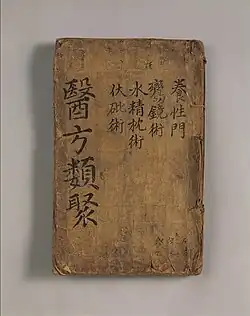 養性門
䥴鏡術
水精枕術
伏砒術
醫方類聚